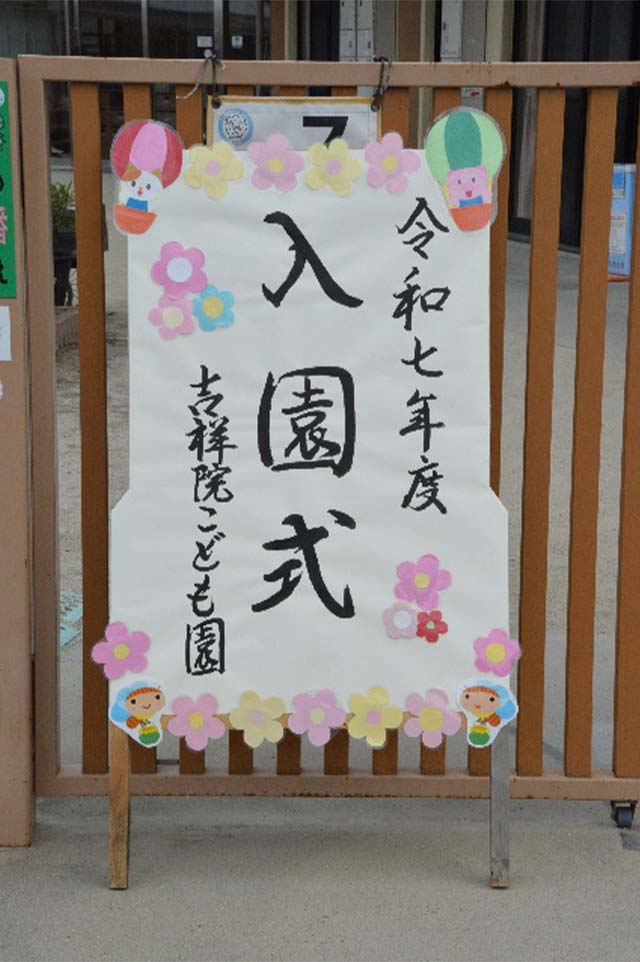 令和七年度
入園式
吉祥院こども園